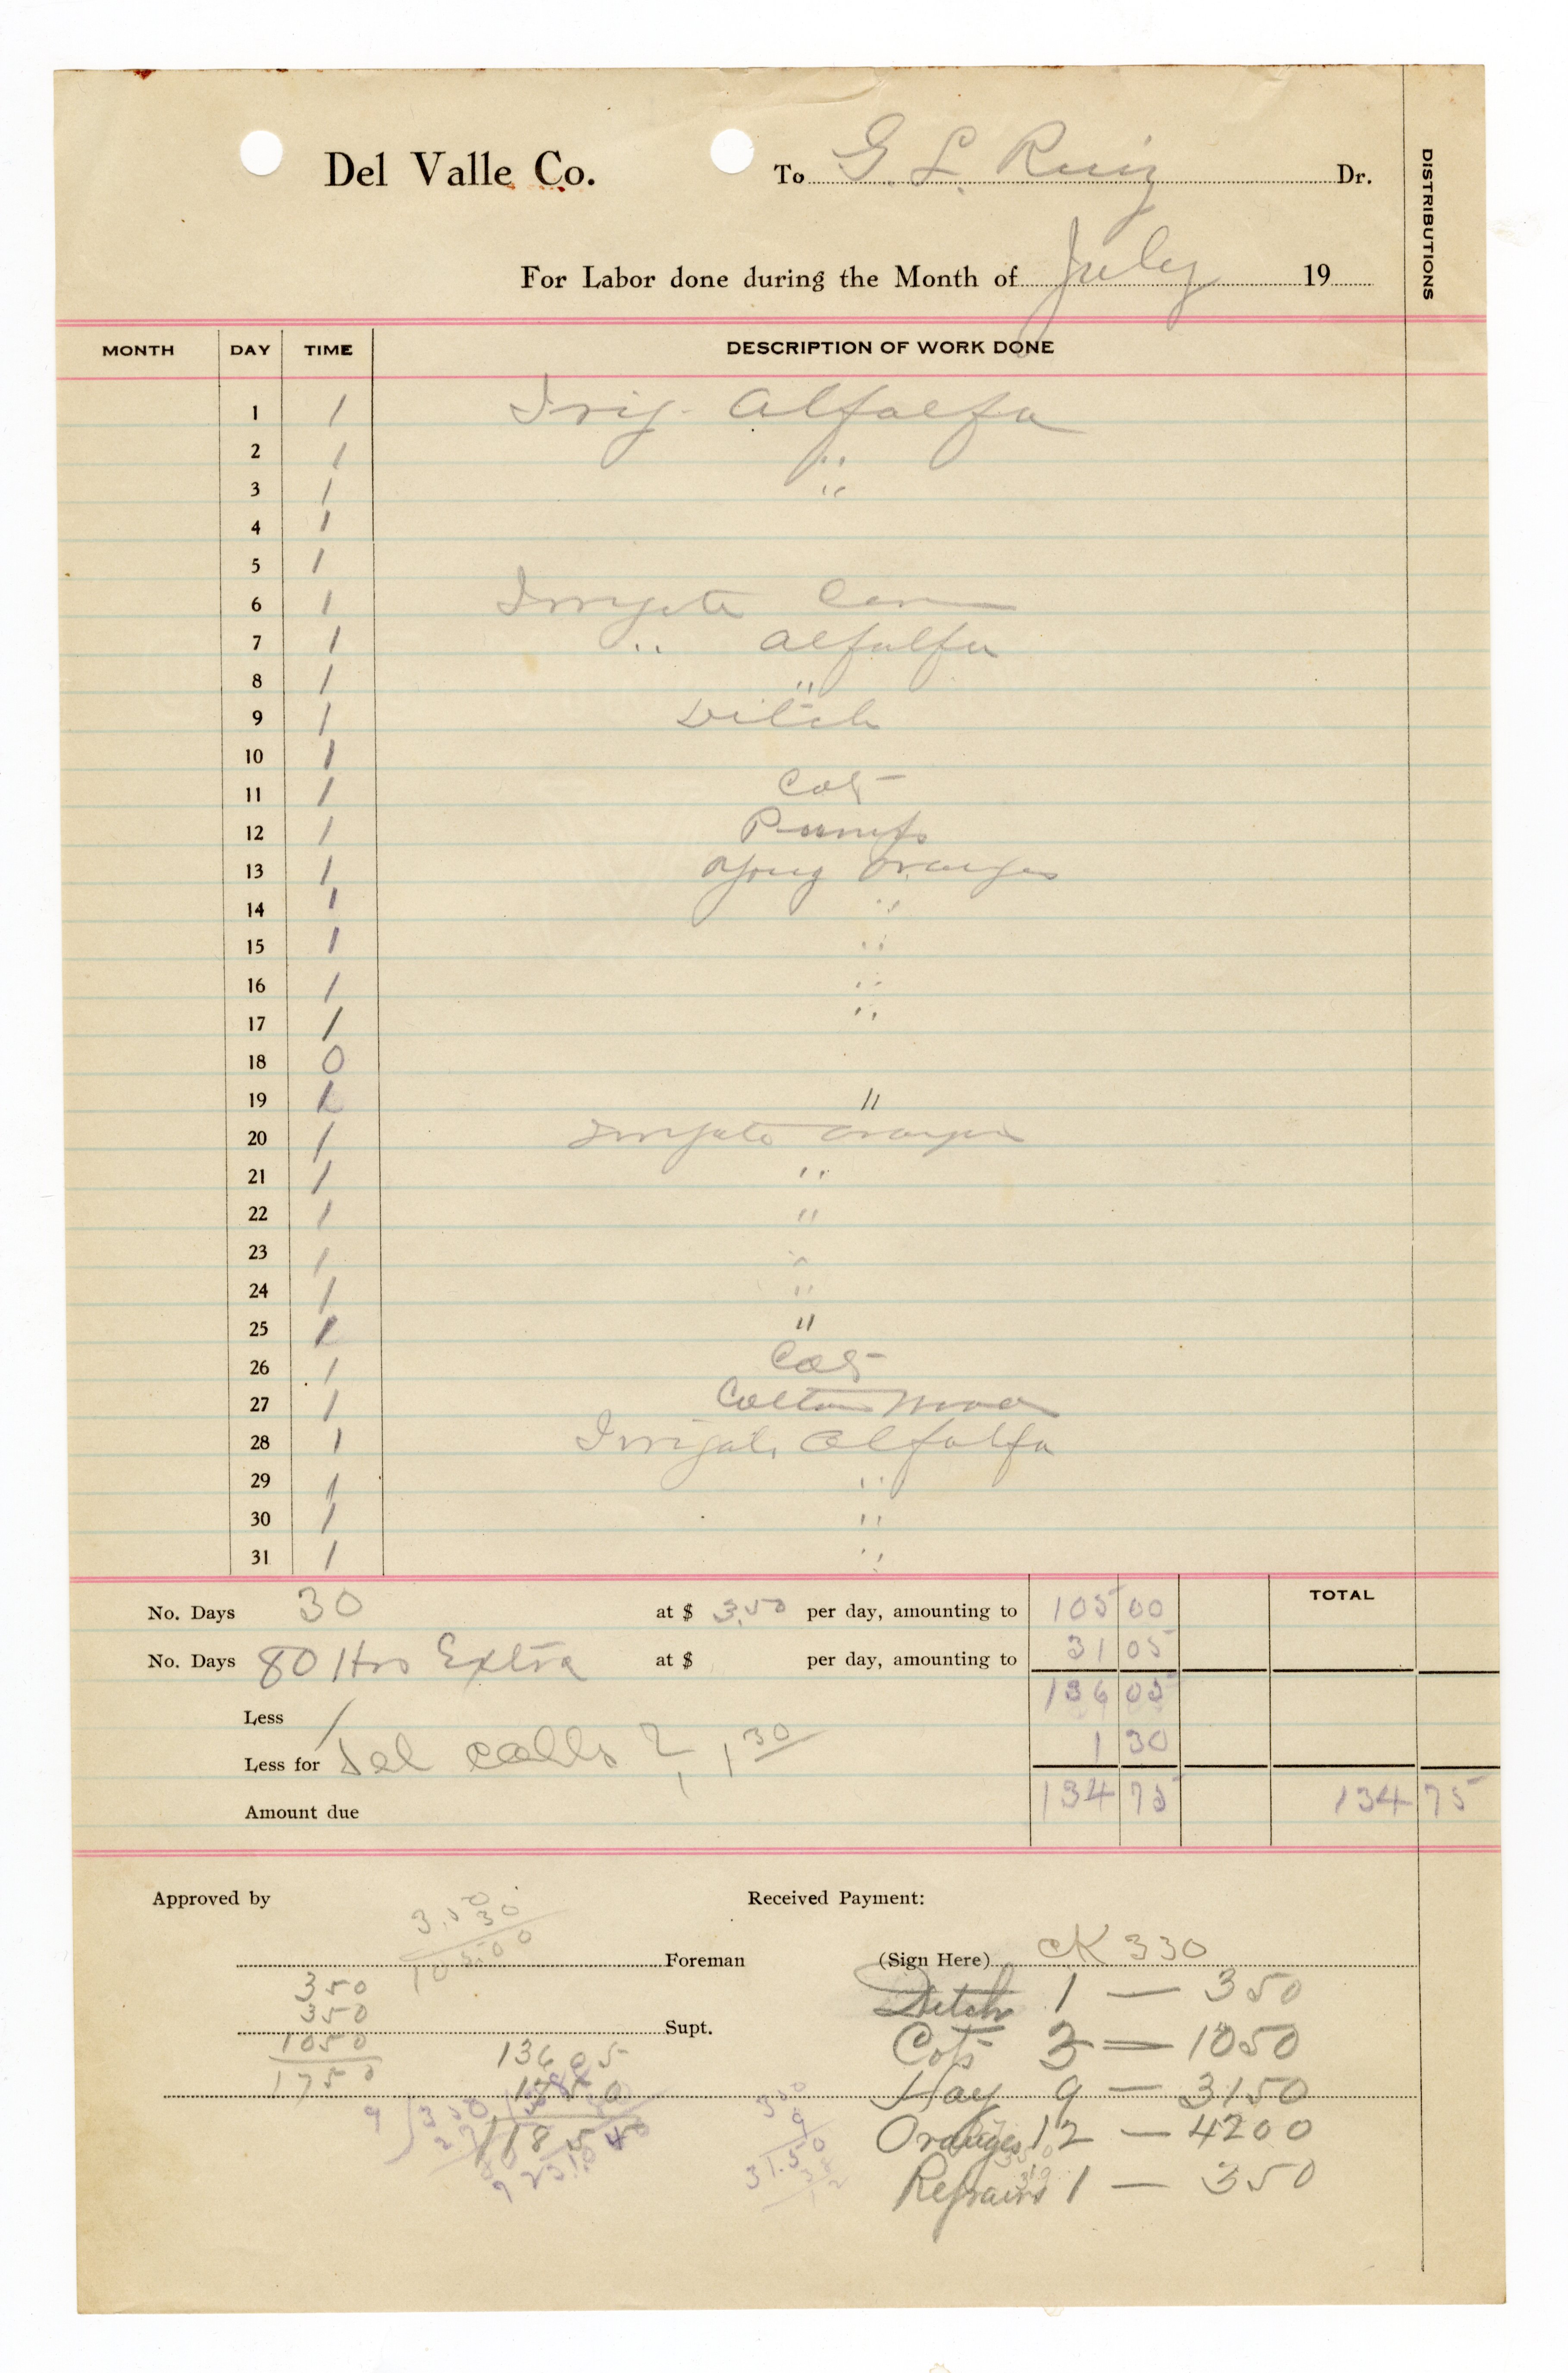 Del Valle Co. To G. L. Ruiz Dr.
DISTRIBUTIONS
For Labor done during the Month of July 19
MONTH DAY TIME DESCRIPTION OF WORK DONE
1 1 Irig. Alfalfa
2 1 "
3 1 "
4 1
5 1
6 1 Irrigate
7 1 " Alfalfa
8 1 "
9 1 Ditch
10 1
11 1 Cots
12 1
13 1 Young Oranges
14 1 "
15 1 "
16 1 "
17 1 "
18 0
19 1 "
20 1 Irrigate Oranges
21 1 "
22 1 "
23 1 "
24 1 "
25 1 "
26 1 Cots
27 1 Cotton wood
28 1 Irrigate Alfalfa
29 1 "
30 1 "
31 1 "
TOTAL
No. Days 30 at $ 3.50 per day, amounting to 105 00
No. Days 80 Hrs Extra at $ per day, amounting to 31 05
136 05
Less
Less for Tel calls 2, 1 30 1 30
Amount due 134 75 134 75
Approved by Received Payment:
3.50
30
105.00
Foreman (Sign Here) CK 330
350
350
1050
1750
Supt.
136 05
17 50
118 55
Ditch 1 — 350
Cots 3 — 1050
Hay 9 — 3150
Oranges 12 — 4200
Repairs 1 — 350